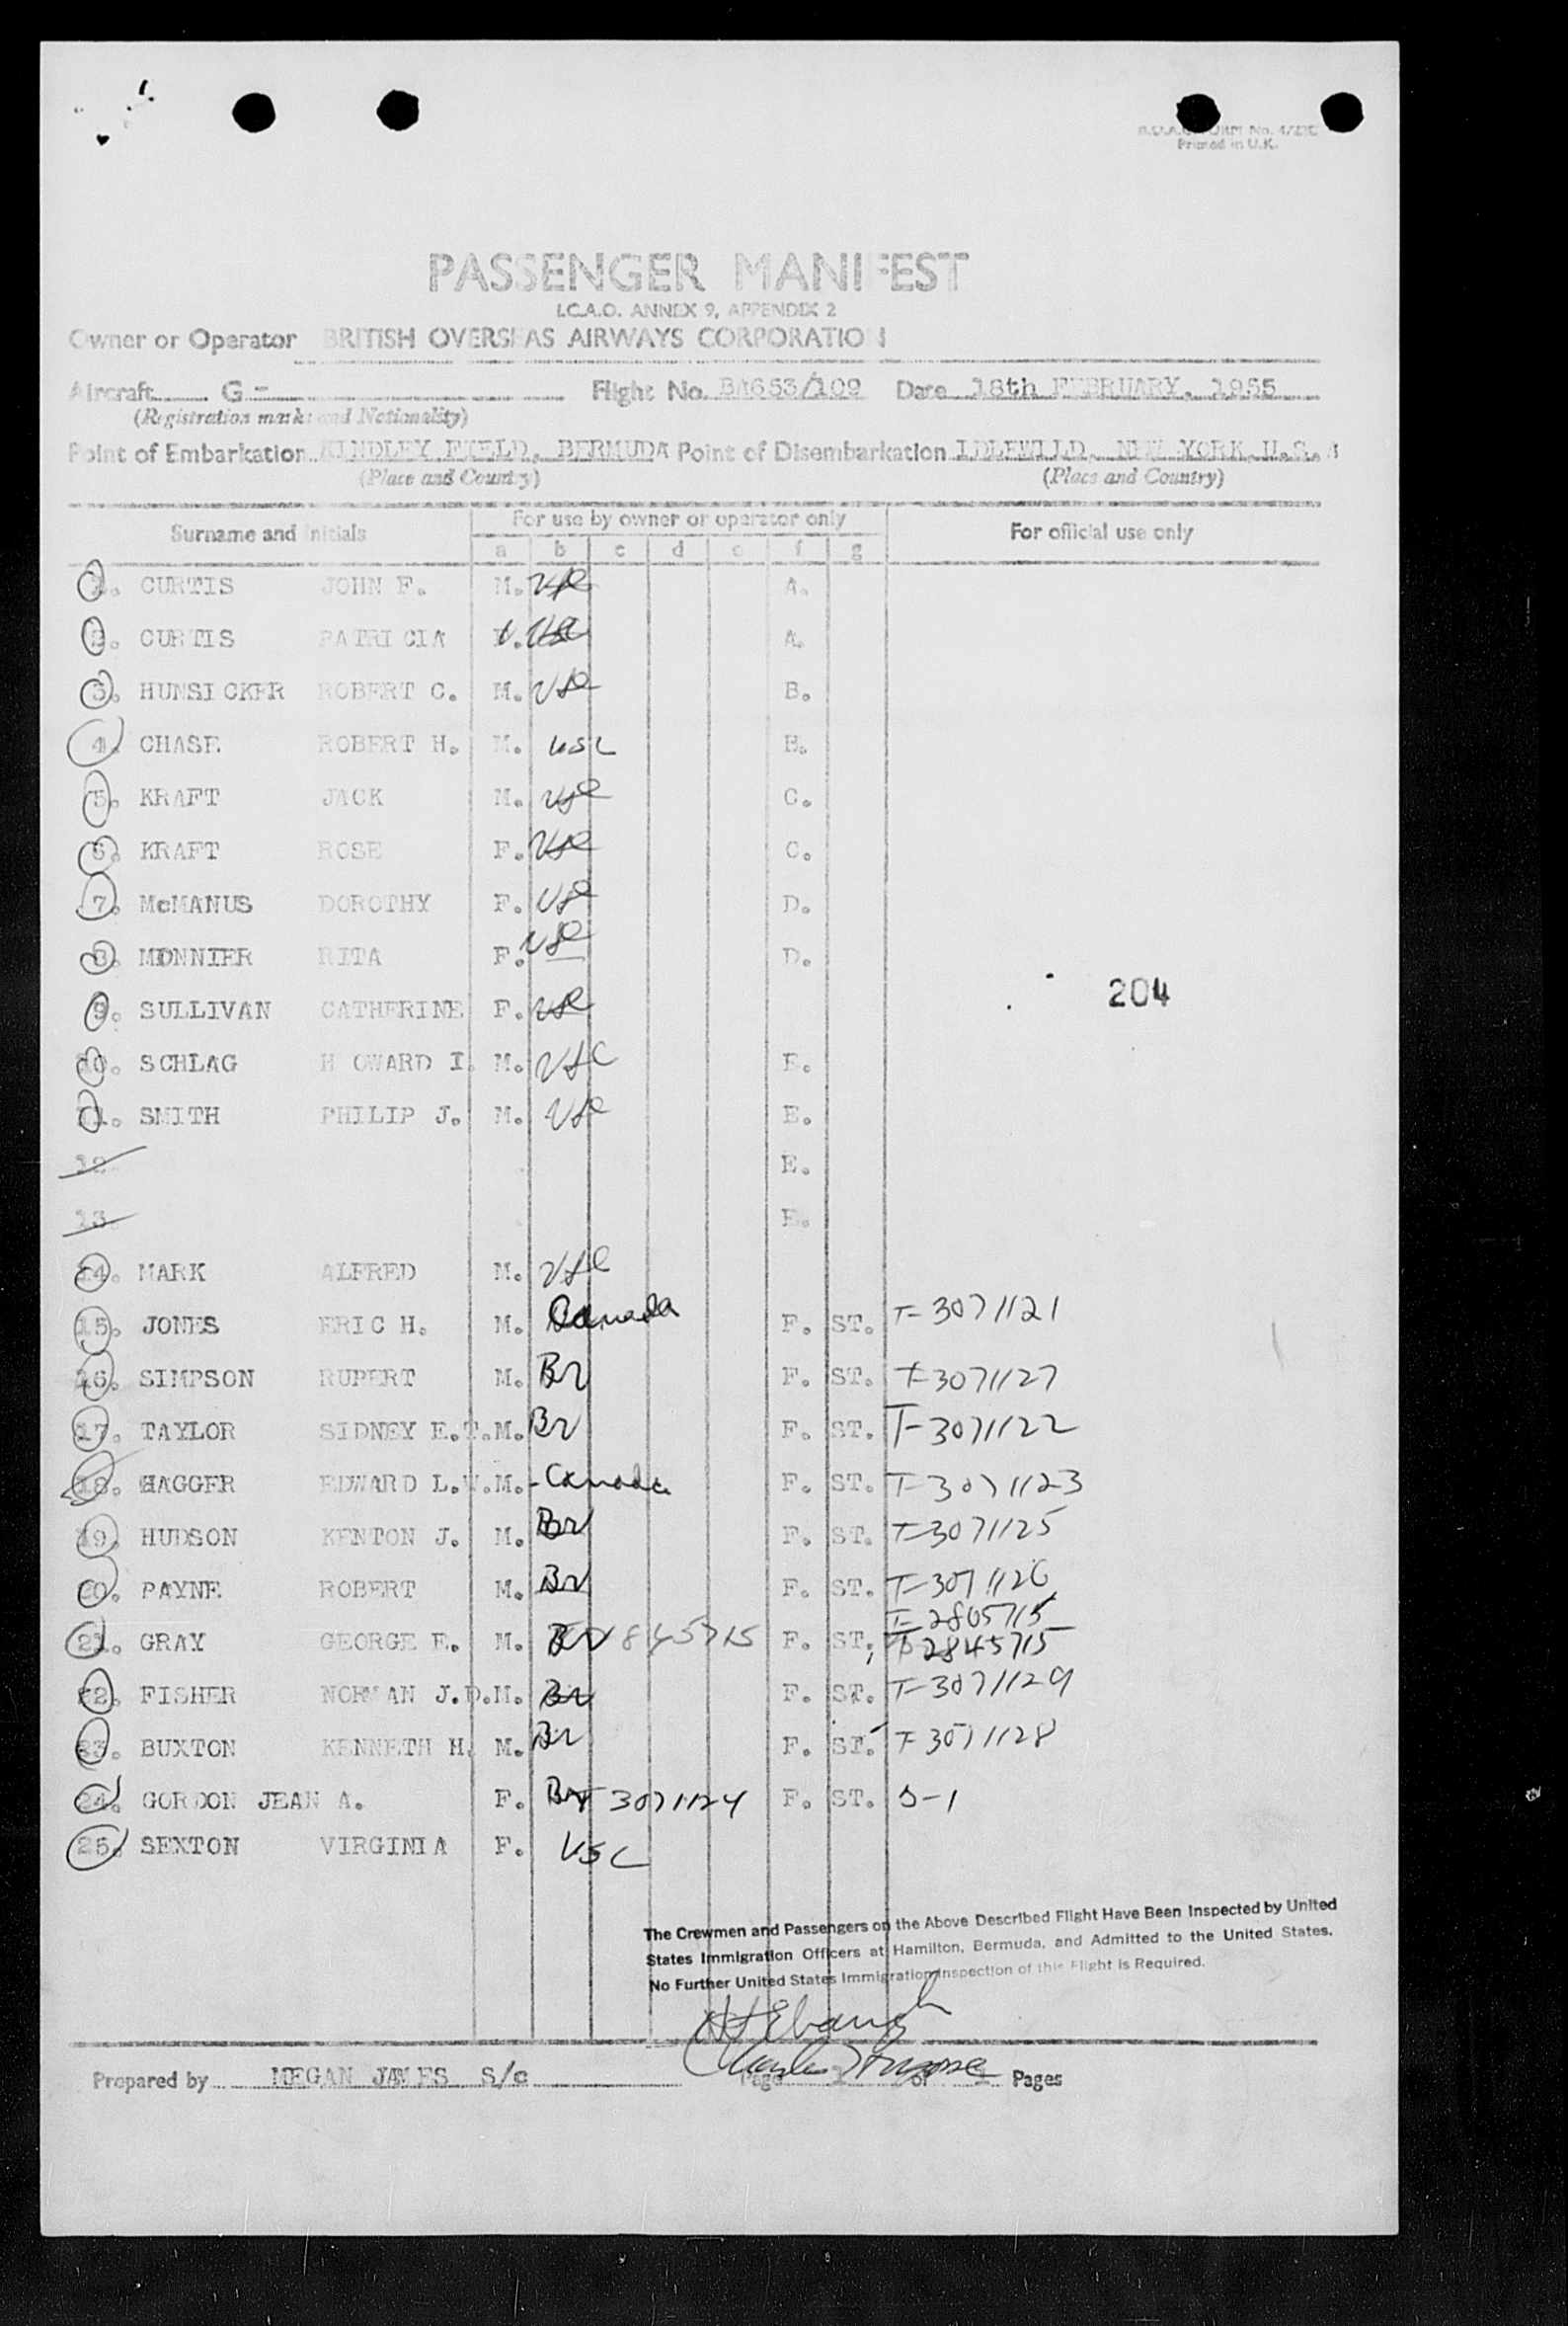 Printed in U.K.
PASSENGER MANIFEST
I.C.A.O. ANNEX 9, APPENDIX 2
Owner or Operator BRITISH OVERSEAS AIRWAYS CORPORATION
Aircraft G - Flight No. BA653/109 Date 18th FEBRUARY, 1955
(Registration marks and Nationality)
Point of Embarkation KINDLEY FIELD, BERMUDA Point of Disembarkation IDLEWILD, NEW YORK, U.S.A
(Place and Country) (Place and Country)
Surname and Initials For use by owner or operator only For official use only
a b c d e f g
1. CURTIS JOHN F. M. USC A.
2. CURTIS PATRICIA USC A.
3. HUNSICKER ROBERT C. M. USC B.
4. CHASE ROBERT H. M. USC B.
5. KRAFT JACK M. USC C.
6. KRAFT ROSE F. USC C.
7. McMANUS DOROTHY F. USC D.
8. MONNIER RITA F. USC D.
9. SULLIVAN CATHERINE F. USC
204
10. SCHLAG HOWARD I. M. USC E.
11. SMITH PHILIP J. M. USC E.
12 E.
13. E.
14. MARK ALFRED M. USC
15. JONES ERIC H. M. Canada F. ST. T-3071121
16. SIMPSON RUPERT M. Br F. ST. T-3071127
17. TAYLOR SIDNEY E.T. M. Br F. ST. T-3071122
18. HAGGER EDWARD L.W. M. Canada F. ST. T-3071123
19. HUDSON KENTON J. M. Br F. ST. T-3071125
20. PAYNE ROBERT M. Br F. ST. T-3071126
T-2805715
21. GRAY GEORGE E. M. Br 845715 F. ST. T-2845715
22. FISHER NORMAN J.D. M. Br F. ST. T-3071129
23. BUXTON KENNETH H. M. Br F. ST. T-3071128
24. GORDON JEAN A. F. Br T 3071124 F. ST. S-1
25. SEXTON VIRGINIA F. USC
The Crewmen and Passengers on the Above Described Flight Have Been Inspected by United
States Immigration Officers at Hamilton, Bermuda, and Admitted to the United States.
No Further United States Immigration Inspection of this Flight is Required.
Prepared by MEGAN JAMES S/c Page 1 of 1 Pages